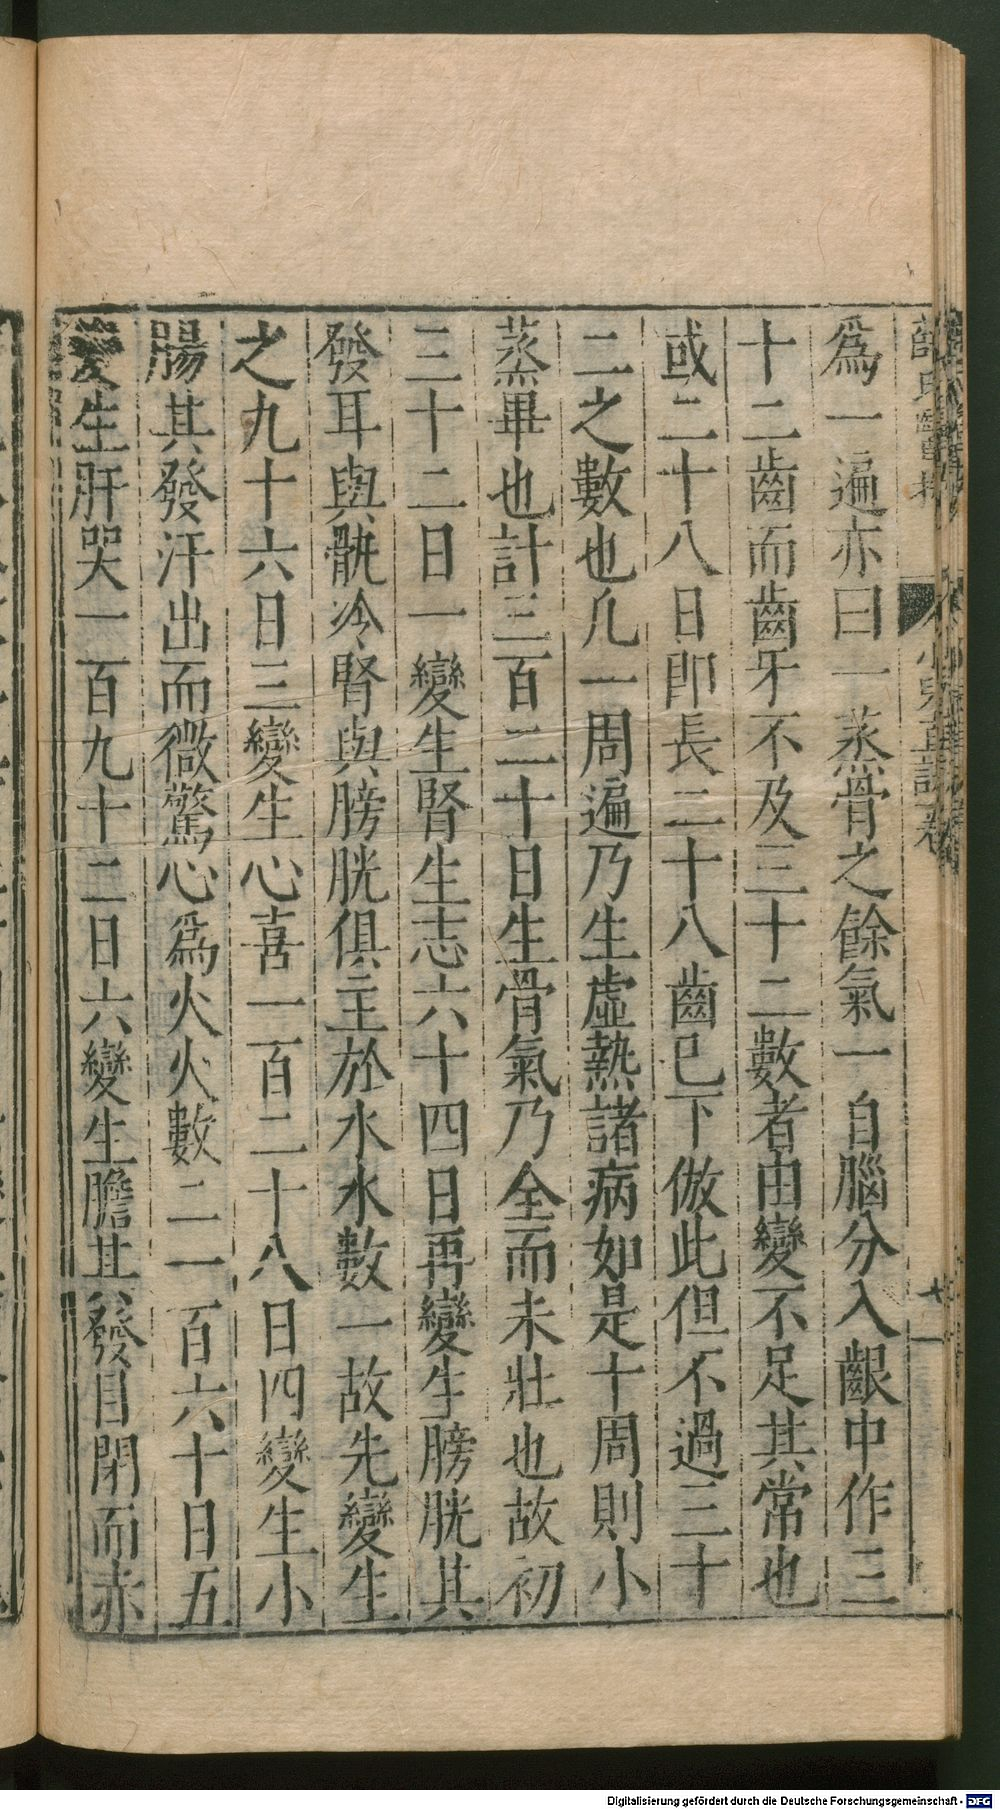 爲一遍亦曰一蒸骨之餘氣一自腦分入齦中作三
十二齒而齒牙不及三十二數者由變不足其常也
或二十八日即長二十八齒已下倣此但不過三十
二之數也凡一周遍乃生虛熱諸病如是十周則小
蒸畢也計三百二十日生骨氣乃全而未壯也故初
三十二日一變生腎生志六十四日再變生膀胱其
發耳與骩冷腎與膀胱俱主於水水數一故先變生
之九十六日三變生心喜一百二十八日四變生小
腸其發汗出而微驚心爲火火數二一百六十日五
變生肝哭一百九十二日六變生膽其發目閉而赤
Digitalisierung gefördert durch die Deutsche Forschungsgemeinschaft - DFG